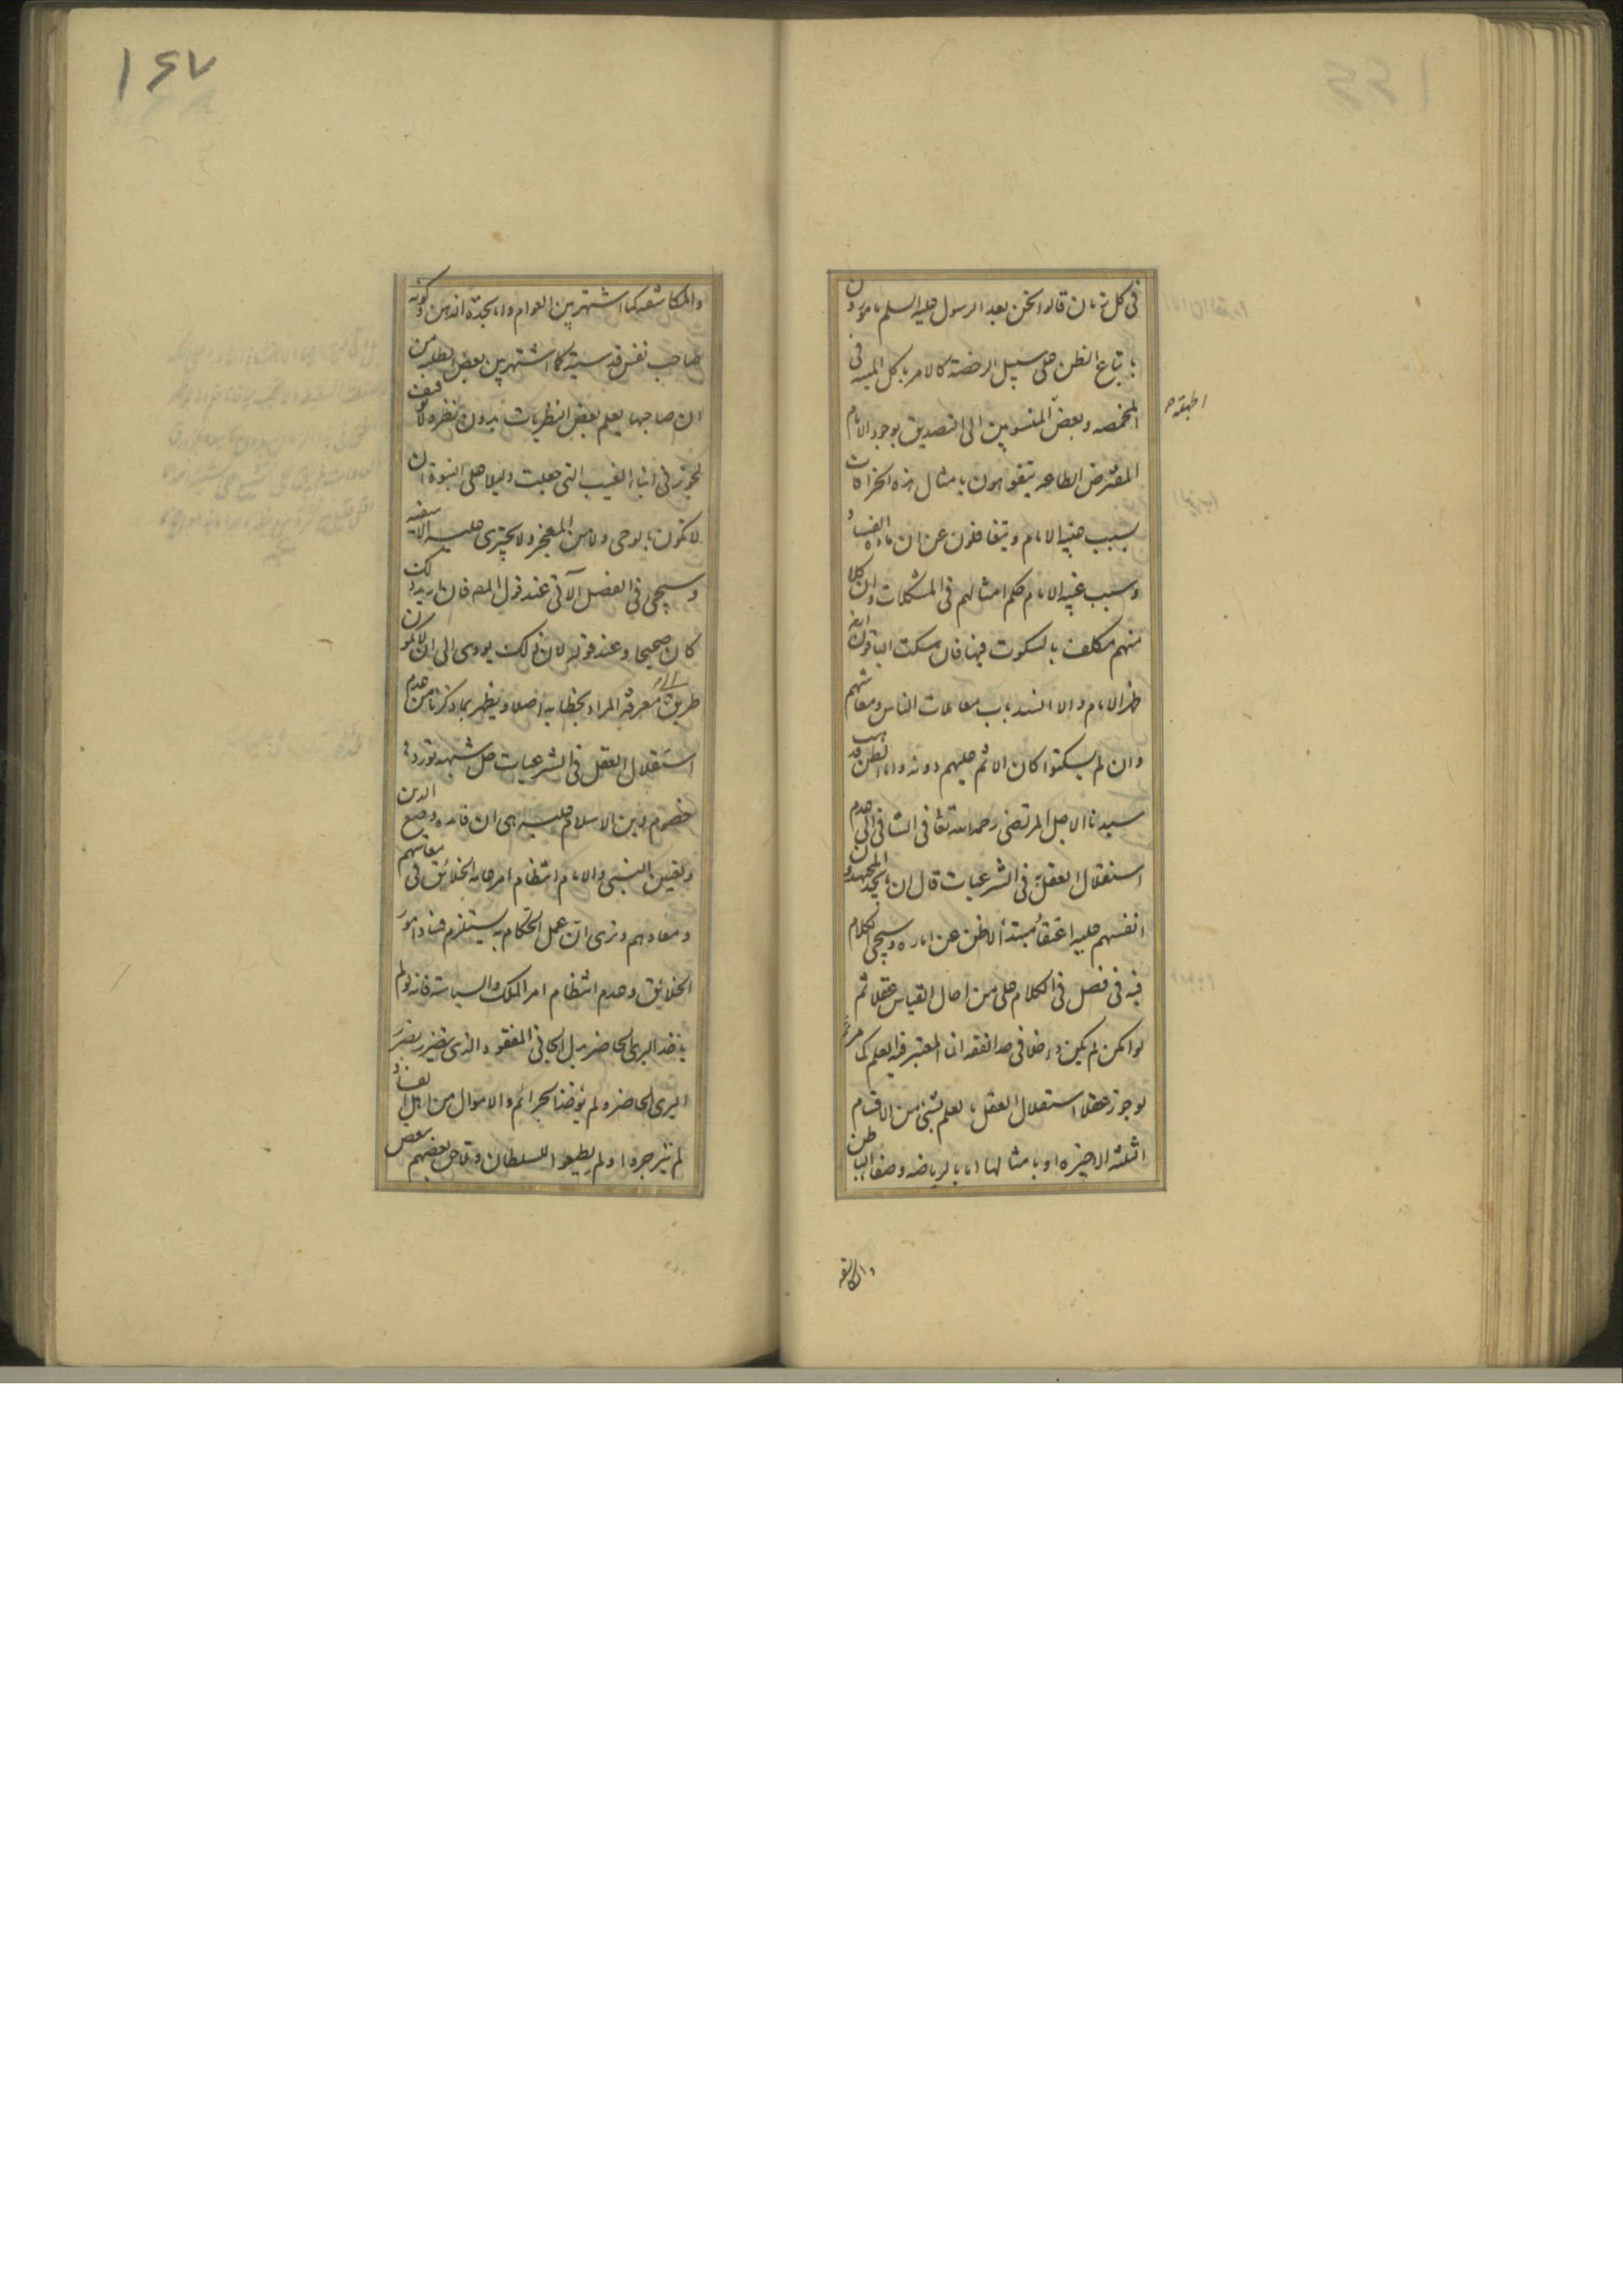 في كل زمان قالوا نحن بعد الرسول عليه السلم مامورون
باتباع الظن على سبيل الرخصة كالامر باكل الميتة في
المخمصه وبعض المنسوبين الى التصديق بوجود الامام
المفترض الطاعه يتفوهون بامثال هذه الخرافات
بسبب غيبه الامام ويتغافلون عن ان مادة الفساد
وسبب غيبه الامام حكم امثالهم في المشكلات وان كلا
منهم مكلف بالسكوت فيها فان سكت الباقون
ظهر الامام والا انسد باب معاملات الناس ومعاشهم
وان لم يسكتوا كان الاثم عليهم دونه واما الظن
سيدنا الاجل المرتضى رحمه الله تعا في الشافي الى عدم
استقلال العقل به في الشرعيات قال ان ما يجد المجتهدون
انفسهم عليه اعتقا مبتدأ لا ظن عن اماره وسيجئ الكلام
فيه في فصل في الكلام على من احال القياس عقلا ثم
لو امكن لم يكن داخلا في حد الفقه اذ المعتبر فيه العلم كما مر
لو جوز عقلا استقلال العقل بالعلم بشئ من الاقسام
الثلثه الاخيره او بامثالها اما بالرياضه وصفا الباطن
اطبقه م
والمكاشفه
١٤٧
والمكاشفه كما اشتهر بين العوام واما بجدة الذهن وكونه
صاحب نفس قدسية كما اشتهر بين بعض الطلبه من
ان صاحبها يعلم بعض النظريات بدون نظر ولا توقف
لجوز في انباء الغيب التي جعلت دليلا على النبوة ان
لا تكون بالوحى ولا من المعجز ولا يجترى عليه الا سفيه
وسيجئ في الفصل الآتي عند قول المص فان اريد بذلك
كان صحيحا وعند قوله لان ذلك يودى الى ان لا يكون
طريق الى معرفة المراد بخطابه اصلا ويظهر بما ذكرنا من عدم
استقلال العقل في الشرعيات حل شبهه تورد
خصوم دين الاسلام عليه هى ان فائده وضع الدين
وتعيين النبى والامام انتظام امر عامه الخلائق في معاشهم
ومعادهم ونرى ان عمل الحكام به يستلزم فساد امور
الخلايق وعدم انتظام امر الملك والسياسة فانه لو لم
ياخذ البرئ الحاضر بدل الجاني المفقود الذي يتضرر بضرر
البرئ الحاضر ولم يؤخذ الجرائم والاموال من اهل الفساد
لم ينزجروا ولم يطيعوا للسلطان وتلاحق بعضهم ببعض